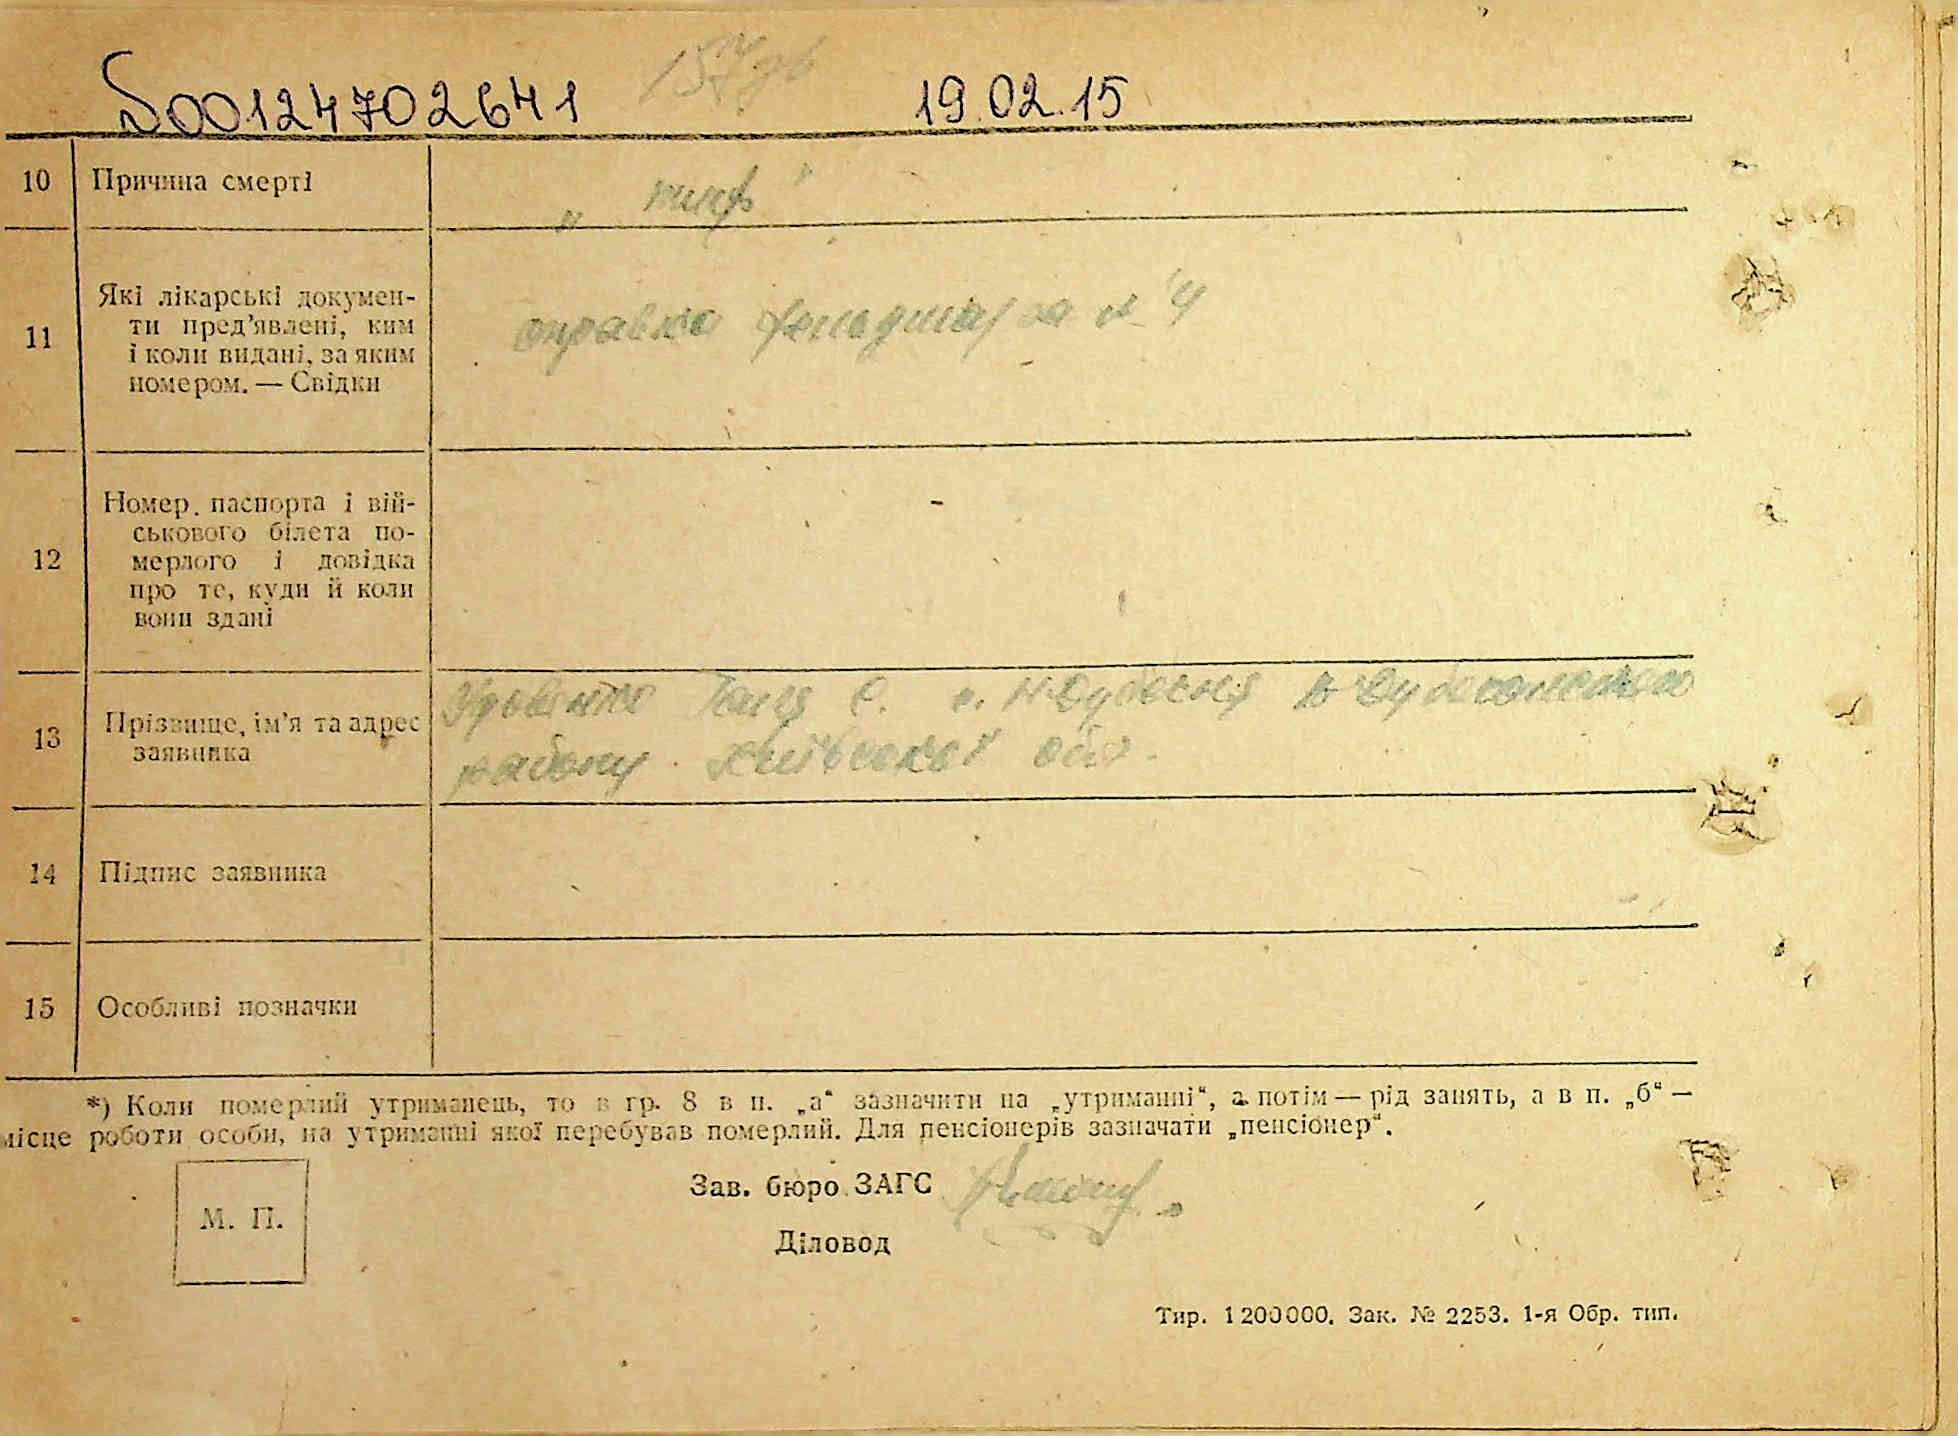 S00124702641 19.02.15
10 Причина смерті „ тиф "
11 Які лікарські докумен-
ти пред’явлені, ким
і коли видані, за яким
номером. — Свідки
справка фельдшара № 4
12 Номер паспорта і вій-
ськового білета по-
мерлого і довідка
про те, куди й коли
вони здані
13 Прізвище, ім’я та адрес
заявника
с.
району Київської обл.
14 Підпис заявника
15 Особливі позначки
*) Коли померлий утриманець, то в гр. 8 в п. „а“ зазначити на „утриманні“, а потім — рід занять, а в п. „б“ —
місце роботи особи, на утриманні якої перебував померлий. Для пенсіонерів зазначати „пенсіонер“.
Зав. бюро ЗАГС
М. П.
Діловод
Тир. 1200000. Зак. № 2253. 1-я Обр. тип.